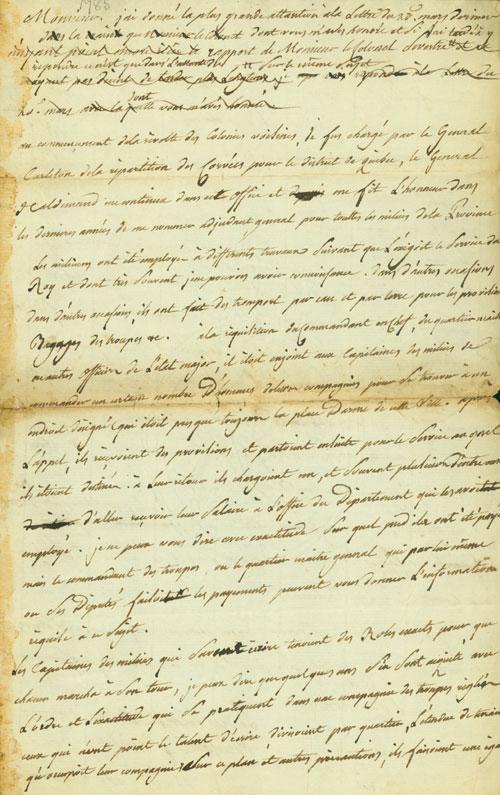 1783
Monsieur. j'ai donné la plus grande attention à la Lettre du 20. mars dernier
dont vous m'avés honoré et si j'ai tardé à y
répondre ce n'est que dans l'attente du rapport de Monsieur le Colonel
sur le même sujet
répondre à la Lettre du
20. mars dont vous m'avés honoré
au commencement de la révolte des Colonies voisines, je fus chargé par le General
Carleton de la répartition des Corvées pour le district de Quebec, le General
haldimand me continua dans cet office et me fit L'honneur dans
les dernieres années de me nommer adjudant general pour toutes les milices de la Province
Les miliciens ont été employés à differents travaux suivant que L'exigeoit le Service du
Roy et dont très souvent je ne pouvois avoir connoissance. dans d'autres occasions
dans d'autres occasions, ils ont fait des transport par eau et par terre pour les provisions
Bagages des troupes &c. à la requisition du Commandant en Chef, du quartier maitre
ou autres officiers de L'etat major, il étoit enjoint aux Capitaines des milices de
commander un certain nombre D'hommes de leurs compagnies pour se trouver à un
endroit désigné (qui étoit presque toujours la place Darme de cette ville. après
L'appel, ils reçevoient des provisions et partoient ensuite pour le Service au quel
ils étoient destinés. à leur retour ils chargeoient un, et souvent plusieurs d'entre eux
d'aller reçevoir leur Salaire à L'office du Département qui les avoit
employé. je ne peux vous dire avec exactitude sur quel pied ils ont été payé
mais le commandant des troupes, ou le quartier maitre general qui par lui même
ou ses Députés faisoit les payements peuvent vous donner L'information
requise à ce Sujet.
Les Capitaines des milices qui savent écrire tenoient des Roles exacts pour que
chacun marcha à son tour, je peux dire que quelques uns s'en sont aquité avec
L'ordre et L'exactitude que se pratiquent dans une compagnie des troupes reglées
ceux qui n'ont point le talent d'écrire divisoient par quartier, L'étendue de terrain
qu'occupoit leur compagnie, sur ce plan et autres précautions, ils faisoient une